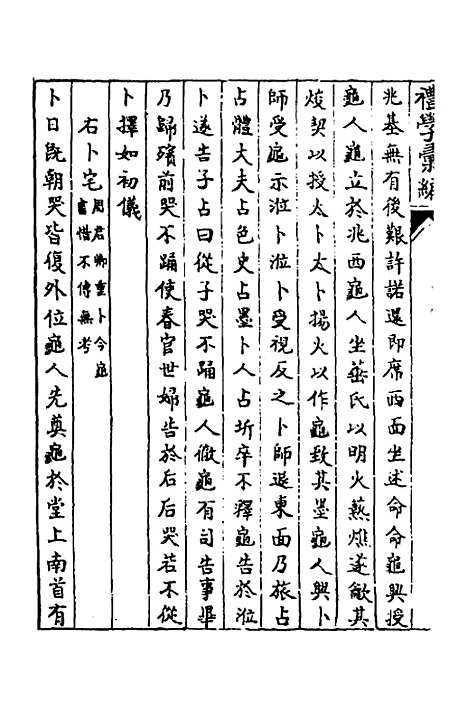 禮學彙編
兆基無有後艱許諾還即席西面坐述命命龜興授
龜人龜立於兆西龜人坐菙氏以明火爇燋遂龡其
焌契以授太卜太卜揚火以作龜致其墨龜人興卜
師受龜示涖卜涖卜受視反之卜師退東面乃旅占
占體大夫占色史占墨卜人占坼卒不釋龜告於涖
卜遂告子占曰從子哭不踊龜人徹龜有司告事畢
乃歸殯前哭不踊使春官世婦告於后后哭若不從
卜擇如初儀
右卜宅周君卿重卜今龜
書惜不傳無考
卜日既朝哭皆復外位龜人先奠龜於堂上南首有